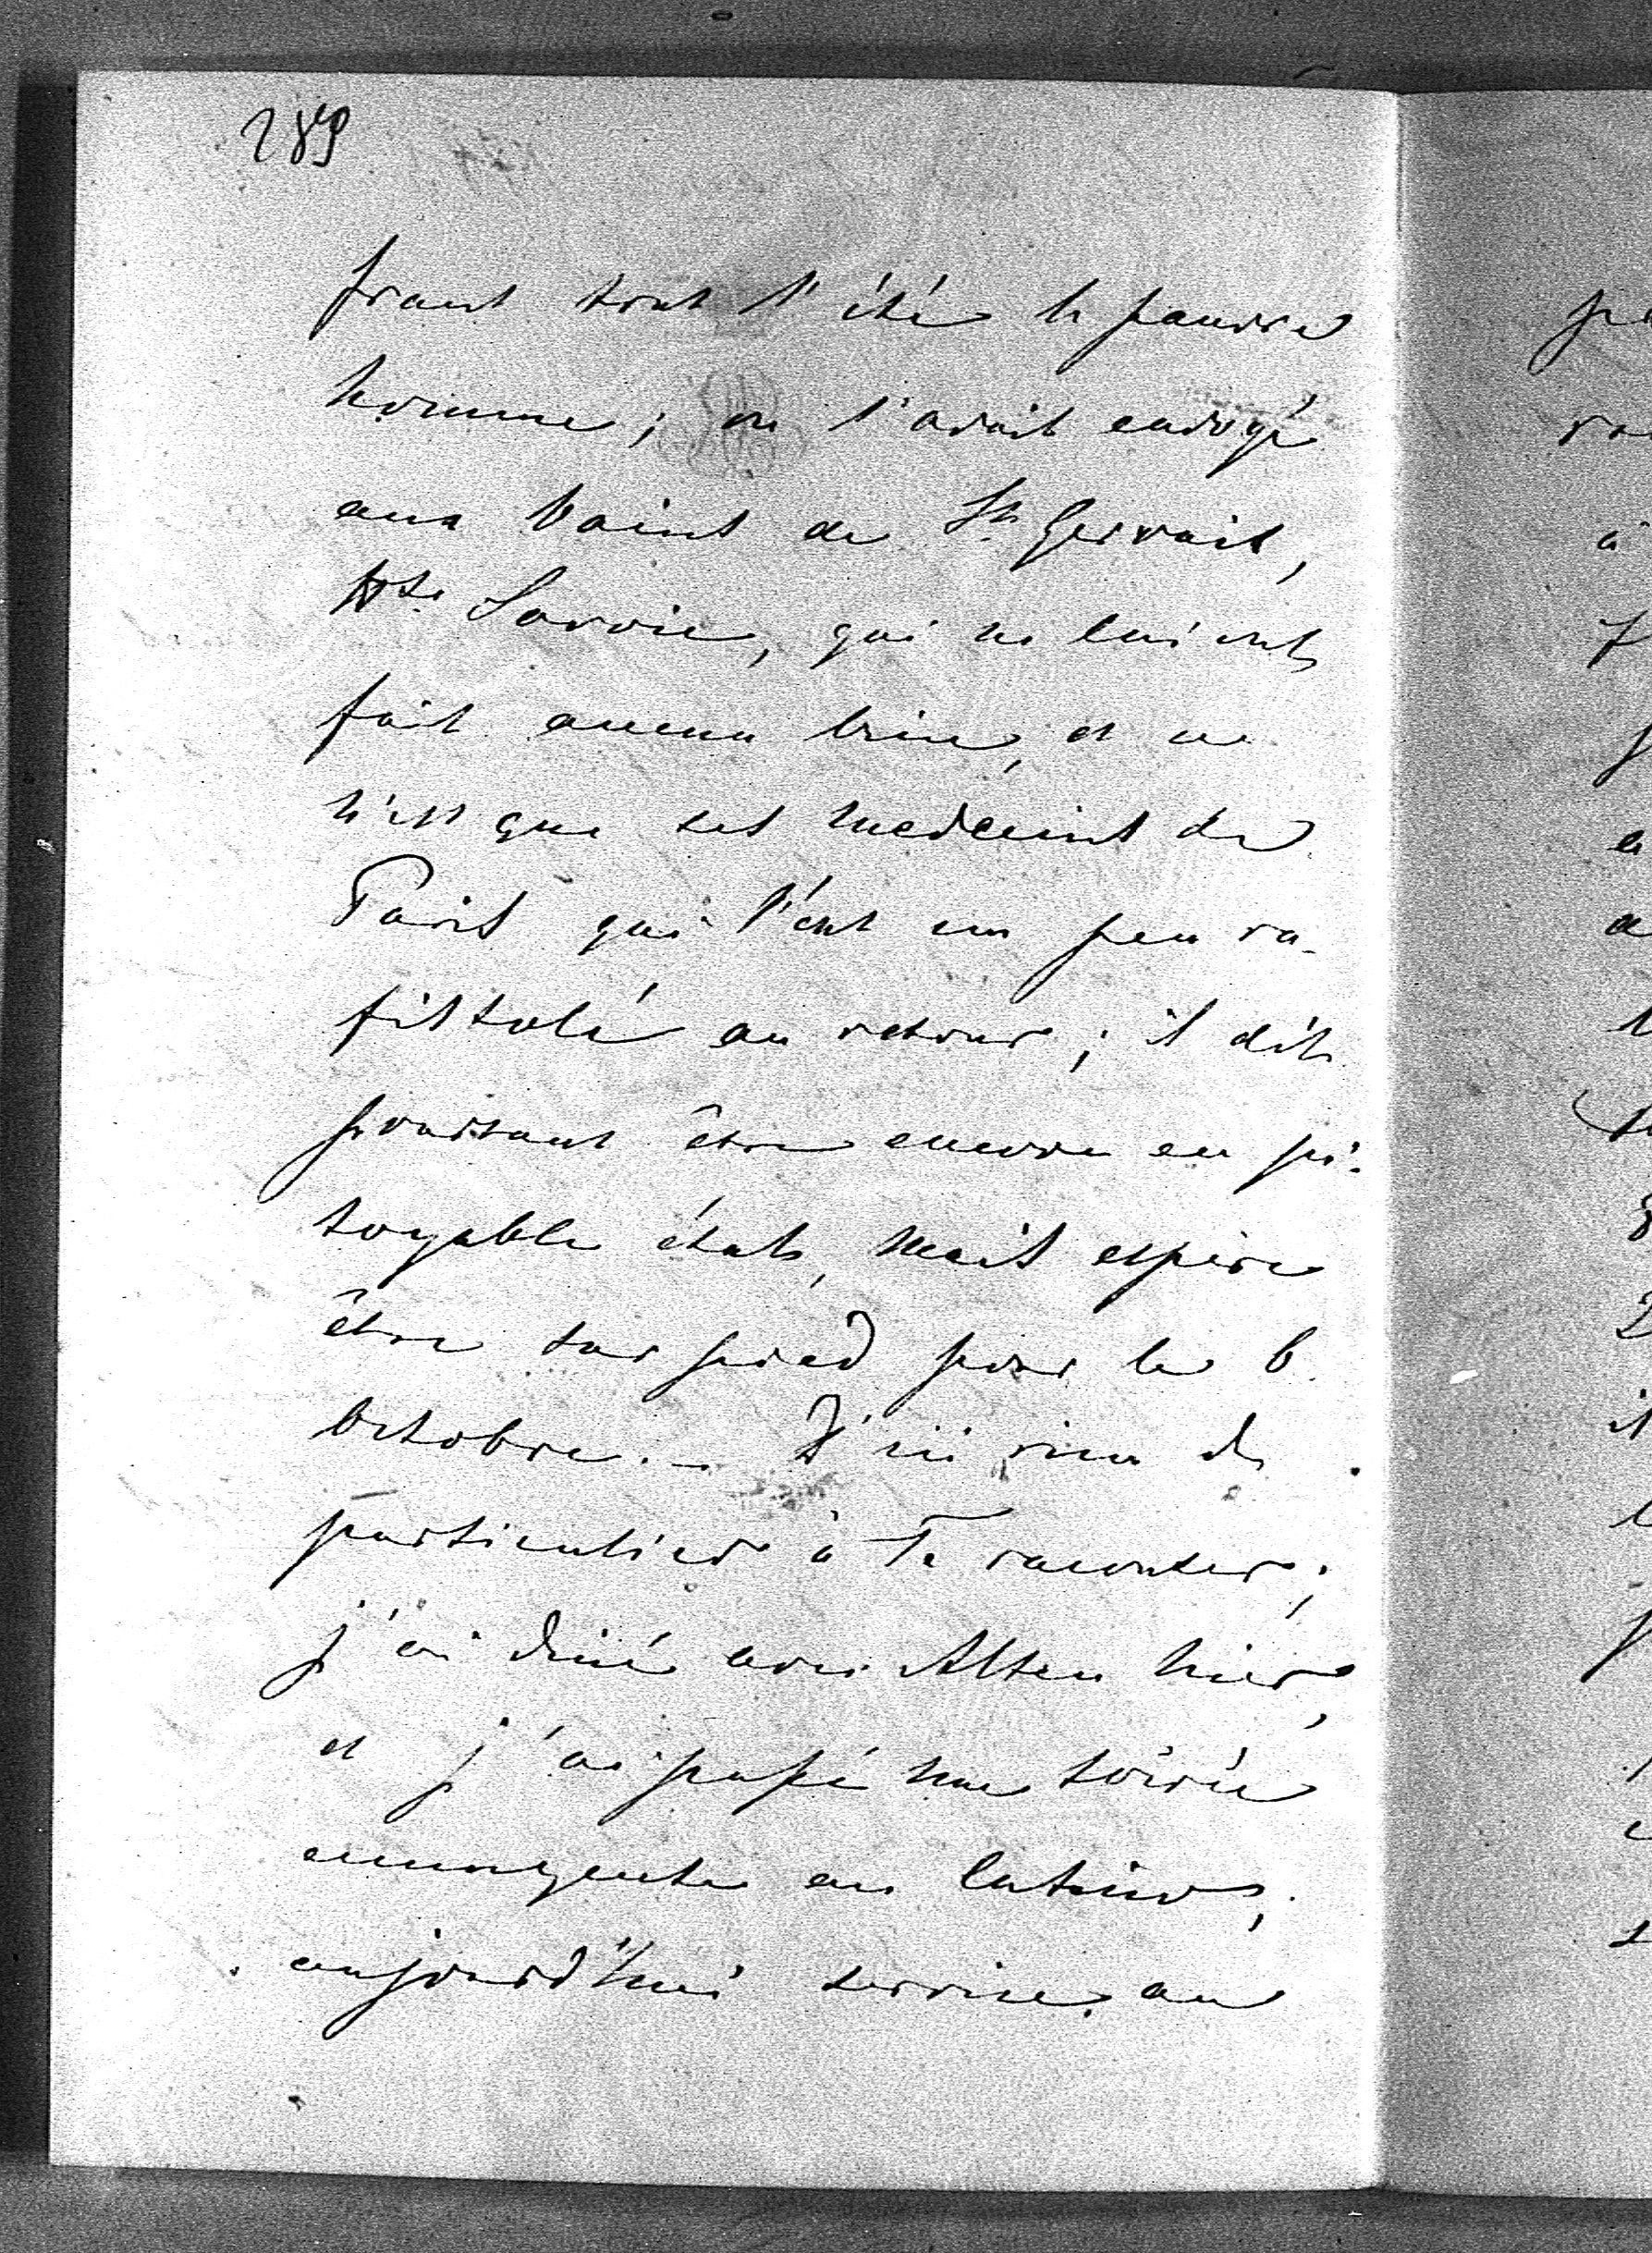 289
frant tout l'été le pauvre
homme; on l'avait envoyé
aux bains de St. Gervais,
Hte. Savoie, qui ne lui ont
fait aucun bien, et ce
n'est que ses medecins de
Paris qui l'ont un peu ra-
fistolé au retour; il dit
pourtant être encore en pi-
toyable état, mais espère
être sur pied pour le 6
Octobre. — D'ici rien de
particulier à Te raconter;
j'ai diné avec Alten hier,
et j'ai passé une soirée
au
aujourd'hui service au